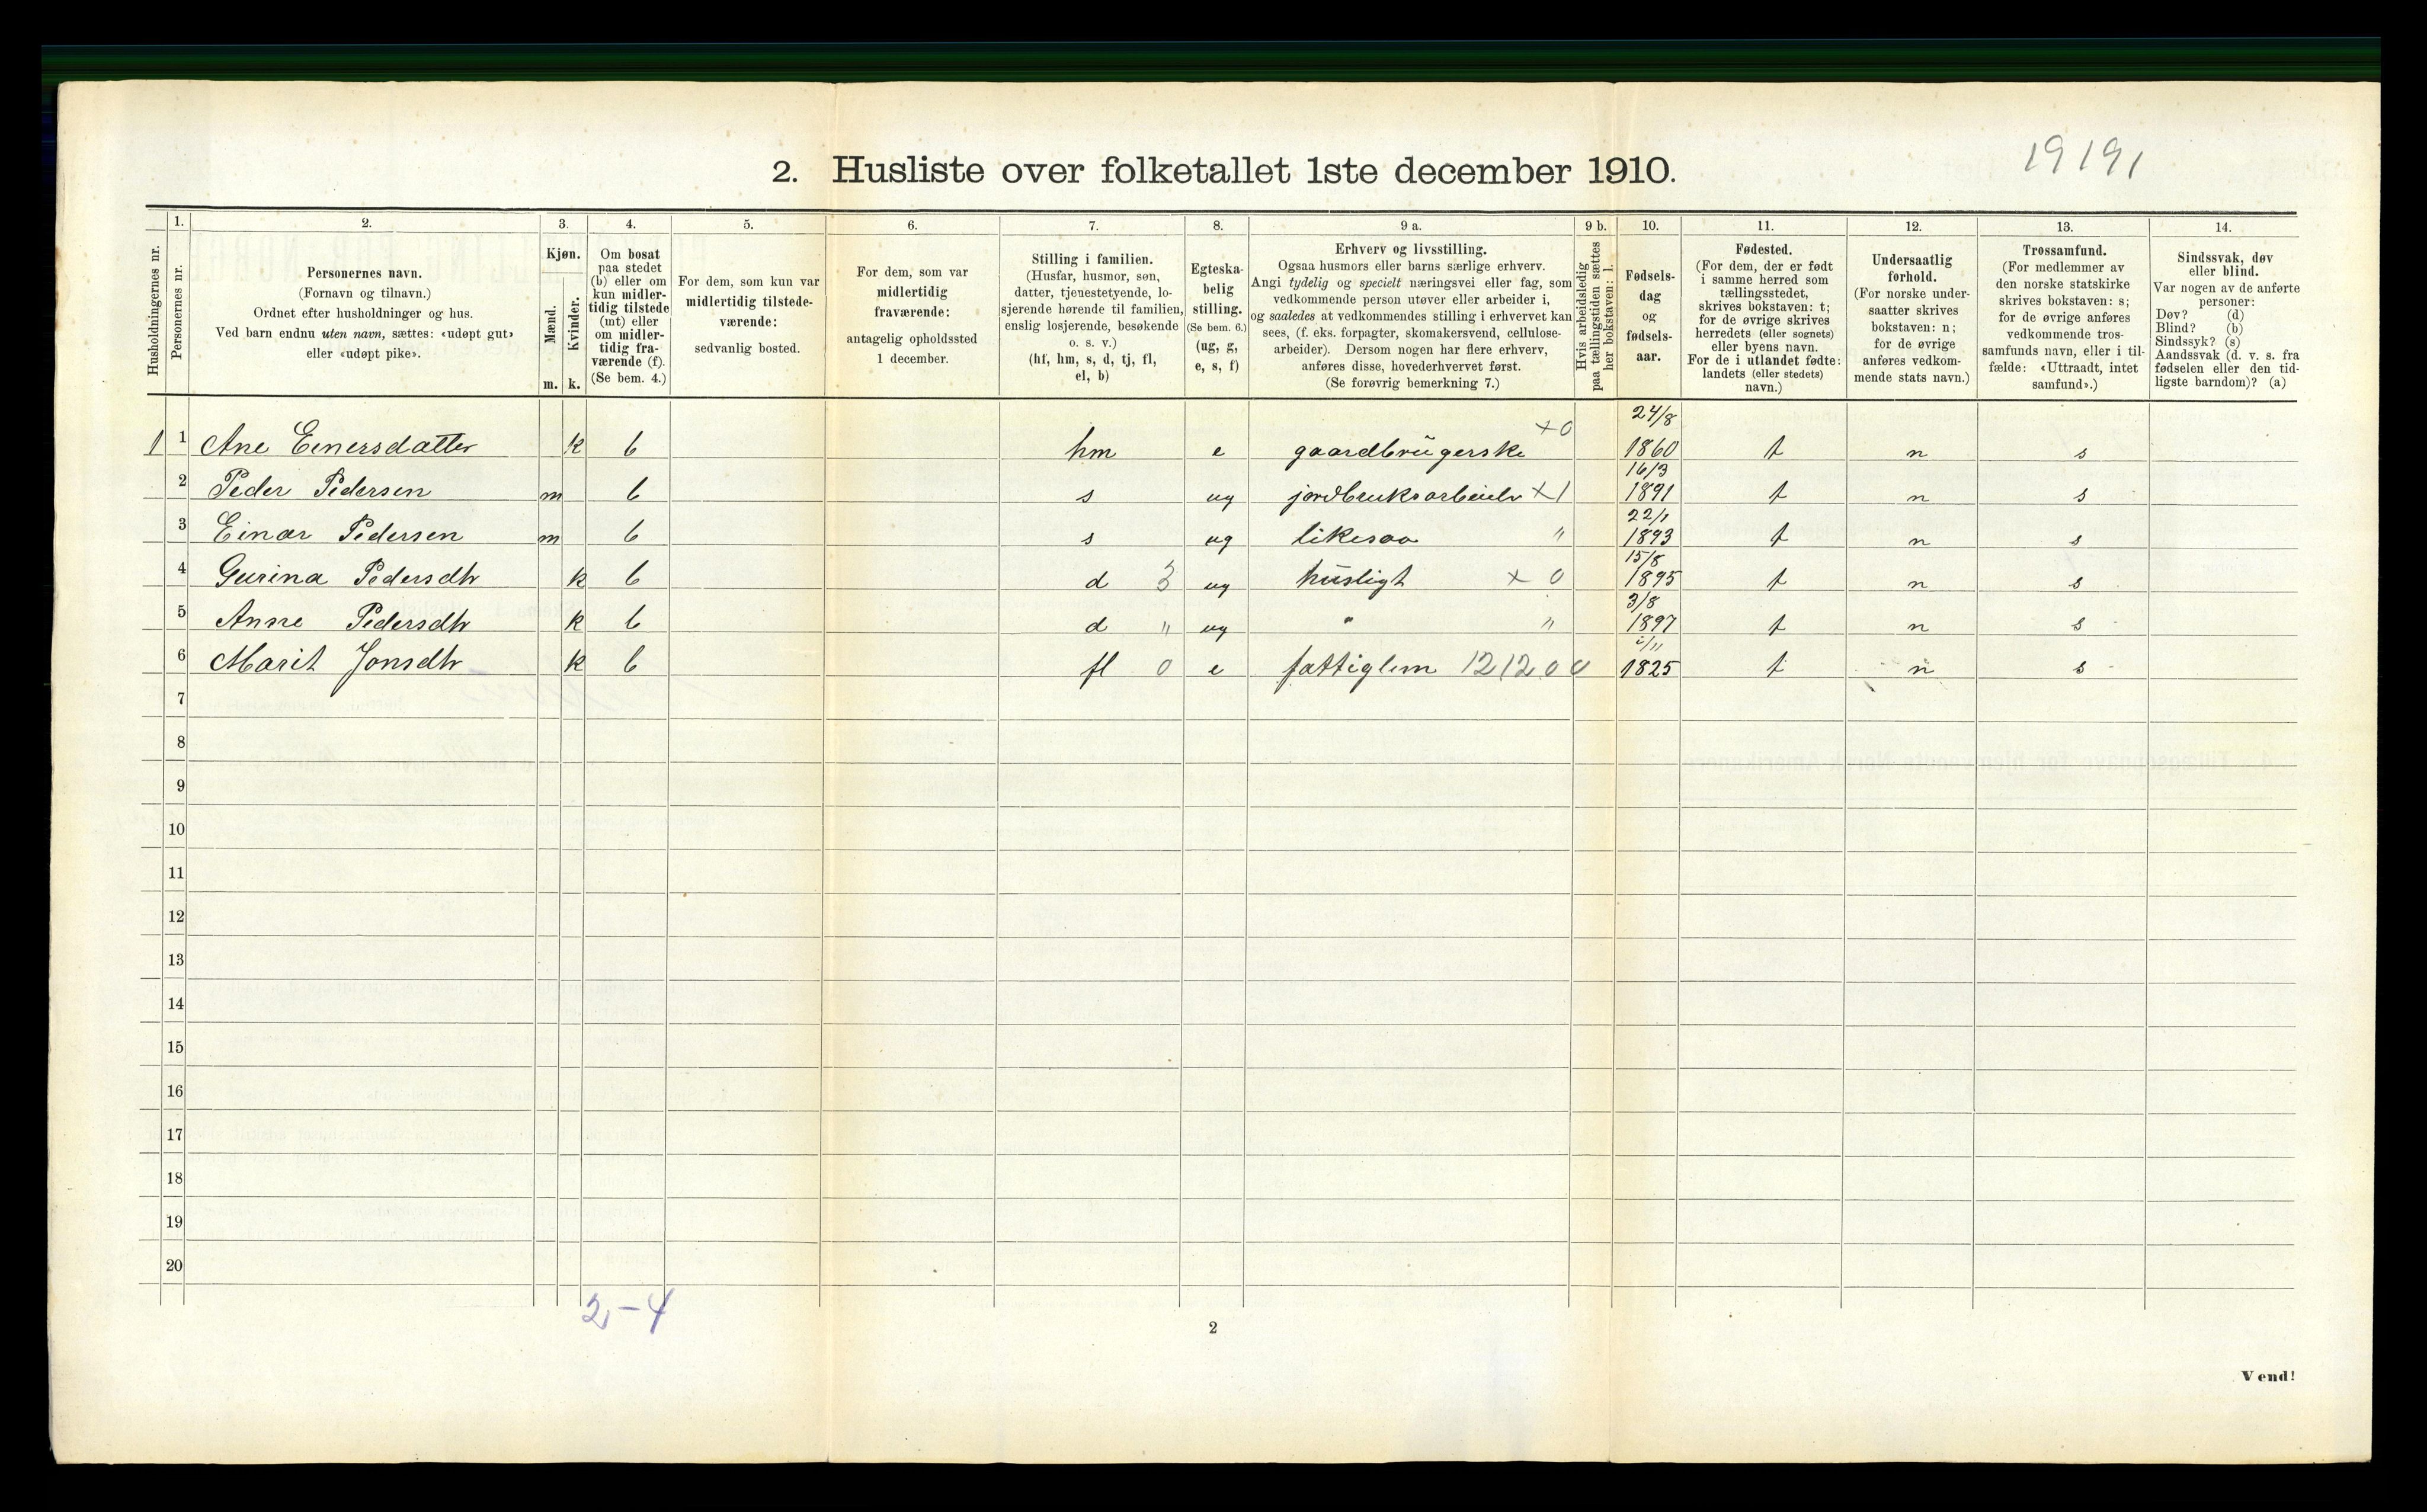 19191
2. Husliste over folketallet 1ste december 1910.
Husholdningernes nr.
1.
Personernes nr.
2.
Personernes navn.
(Fornavn og tilnavn.)
Ordnet efter husholdninger og hus.
Ved barn endnu uten navn, sættes: «udøpt gut»
eller «udøpt pike».
3.
Kjøn.
Mænd.
Kvinder.
m. k.
4.
Om bosat
paa stedet
(b) eller om
kun midler-
tidig tilstede
(mt) eller
om midler-
tidig fra-
værende (f).
(Se bem. 4.)
5.
For dem, som kun var
midlertidig tilstede-
værende:
sedvanlig bosted.
6.
For dem, som var
midlertidig
fraværende:
antagelig opholdssted
1 december.
7.
Stilling i familien.
(Husfar, husmor, søn,
datter, tjenestetyende, lo-
sjerende hørende til familien,
enslig losjerende, besøkende
o. s. v.)
(hf, hm, s, d, tj, fl,
el, b)
8.
Egteska-
belig
stilling.
(Se bem. 6.)
(ug, g,
e, s, f)
9 a.
Erhverv og livsstilling.
Ogsaa husmors eller barns særlige erhverv.
Angi tydelig og specielt næringsvei eller fag, som
vedkommende person utøver eller arbeider i,
og saaledes at vedkommendes stilling i erhvervet kan
sees, (f. eks. forpagter, skomakersvend, cellulose-
arbeider). Dersom nogen har flere erhverv,
anføres disse, hovederhvervet først.
(Se forøvrig bemerkning 7.)
9 b.
Hvis arbeidsledig
paa tællingstiden sættes
her bokstaven: l.
10.
Fødsels-
dag
og
fødsels-
aar.
11.
Fødested.
(For dem, der er født
i samme herred som
tællingsstedet,
skrives bokstaven: t;
for de øvrige skrives
herredets (eller sognets)
eller byens navn.
For de i utlandet fødte:
landets (eller stedets)
navn.)
12.
Undersaatlig
forhold.
(For norske under-
saatter skrives
bokstaven: n;
for de øvrige
anføres vedkom-
mende stats navn.)
13.
Trossamfund.
(For medlemmer av
den norske statskirke
skrives bokstaven: s;
for de øvrige anføres
vedkommende tros-
samfunds navn, eller i til-
fælde: «Uttraadt, intet
samfund».)
14.
Sindssvak, døv
eller blind.
Var nogen av de anførte
personer:
Døv? (d)
Blind? (b)
Sindssyk? (s)
Aandssvak (d. v. s. fra
fødselen eller den tid-
ligste barndom)? (a)
1 1 Ane Einersdatter k b hm e gaardbrügerske +0 24/8 1860 t n s
2 Peder Pedersen m b s ug jordbruksarbeider +1 16/3 1891 t n s
3 Einar Pedersen m b s ug likesaa " 22/1 1893 t n s
4 Gurina Pedersdtr k b d 3 ug hüsligt + 0 15/8 1895 t n s
5 Anne Pedersdtr k b d " ug " " 3/8 1897 t n s
6 Marit Jonsdtr k b fl 0 e fattiglem 121200 /11 1825 t n s
7
8
9
10
11
12
13
14
15
16
17
18
19
20
2-4
2
Vend!